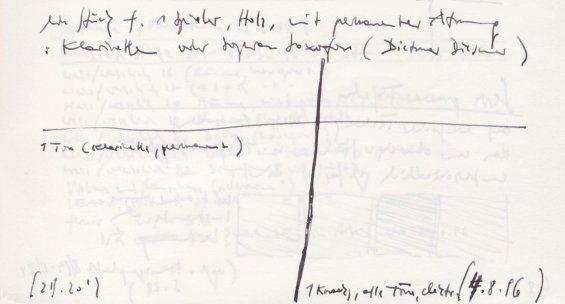 ein Stück f. 1 Spieler, Holz, mit permanenter Atmung
: Klarinette oder Sopran Saxofon (Dietmar Diesner)
1 Ton (Klarinette, permanent)
(ca. 20')
1 , alle Töne, (4.8.96)